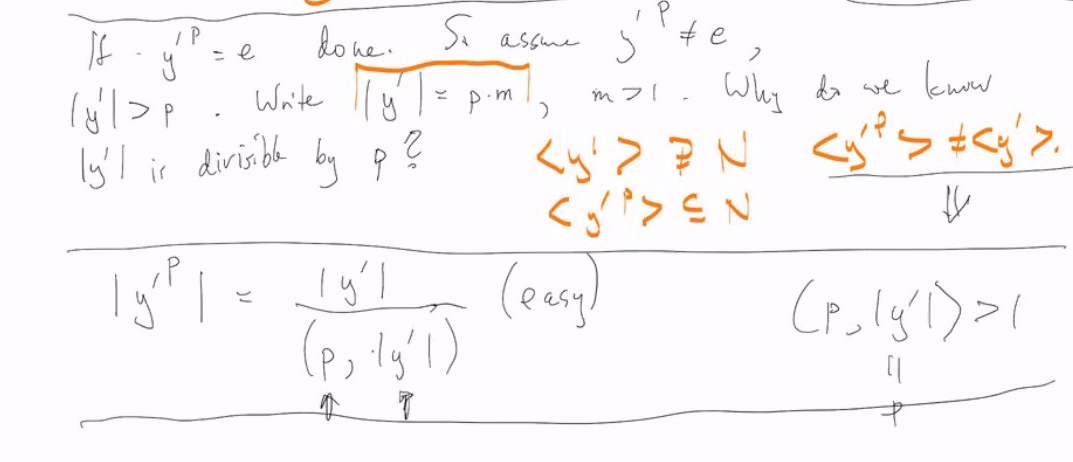 If y'^p = e done. So assume y'^p ≠ e,
|y'| > p. Write |y'| = p·m, m > 1. Why do we know
|y'| is divisible by p?
<y'> ⊉ N <y'^p> ≠ <y'>.
<y'^p> ⊆ N ⇓
|y'^p| = |y'| / (p, |y'|) (easy) (p, |y'|) > 1
↑ ↑ || p